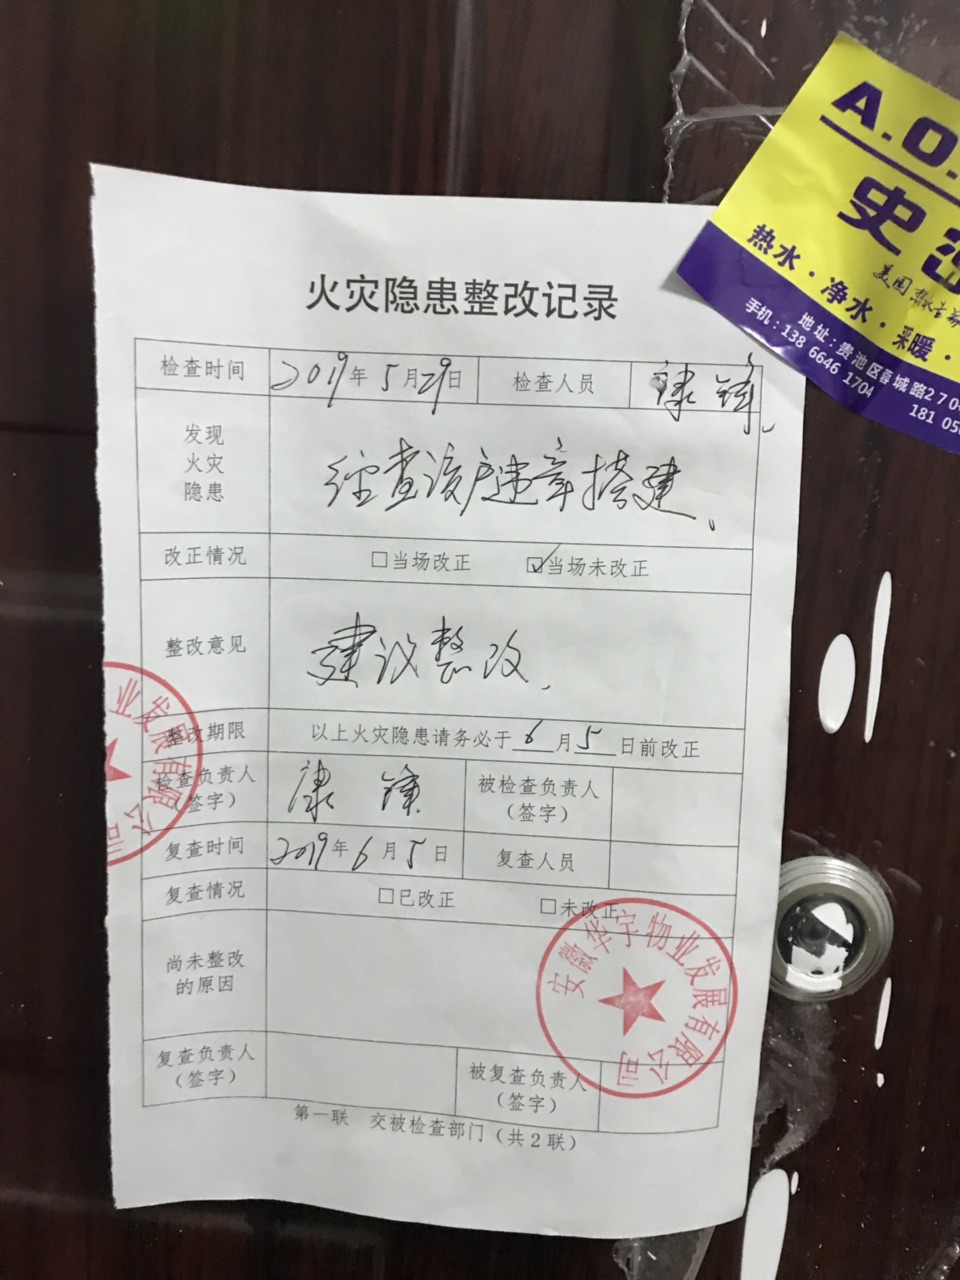 火灾隐患整改记录
检查时间 2019年5月29日 检查人员 康锋
发现
火灾
隐患
经查该户违章搭建、
改正情况 □当场改正 ☑当场未改正
整改意见 建议整改、
整改期限 以上火灾隐患请务必于6月5日前改正
检查负责人
（签字）
康锋
被检查负责人
（签字）
复查时间 2019年6月5日 复查人员
复查情况 □已改正 □未改正
尚未整改
的原因
复查负责人
（签字）
被复查负责人
（签字）
第一联 交被检查部门（共2联）
业发展有限公司
安徽华宇物业发展有限公司
A.O.
史
热水·净水·采暖·
美国
地址：贵池区蓉城路270
手机：138 6646 1704
181 056